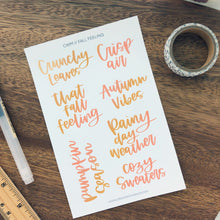 CRISPY FALL FEELING
Crunchy
Leaves
Crisp
air
that
Fall
Feeling
Autumn
Vibes
Rainy
day
weather
Pumpkin
Season
Cozy
Sweaters